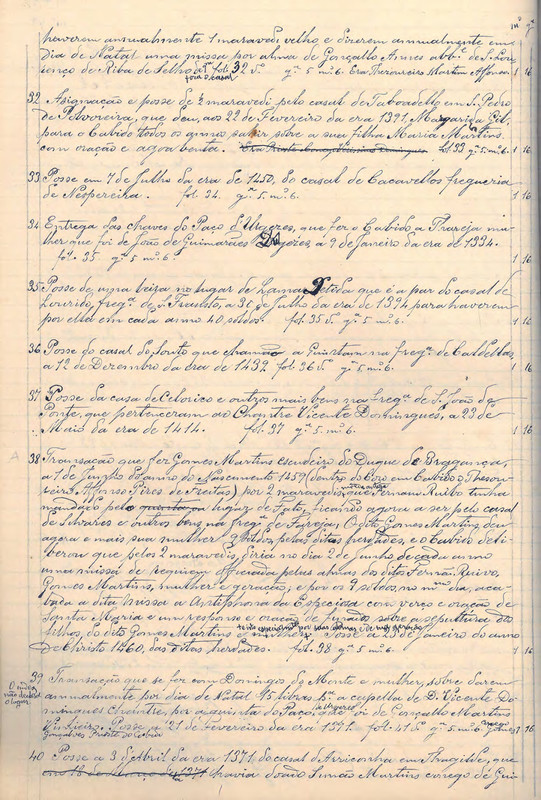 mº gª
haverem annualmente 1 maravedi velho e dizerem annualmente em
dia de Natal uma missa por alma de Gonçallo Annes abb.e de S. Lou-
renço de Riba de Selho fol. 32 v. gª 5 mº 6. Era Thezoureiro Martim Affonso 1 16
32 Assignação e posse de ½ maravedi pelo casal de Taboadello em S. Pedro
de Polvoreira, que deu, aos 22 de Fevereiro da era 1391, Margarida Gil,
para o Cabido todos os annos sahir sobre a sua filha Maria Martins
com oração e agoa benta. fol 33 gª 5 mº 6. 1 16.
33 Posse em 7 de Julho da era de 1450, do casal de Cacavellos freguezia
de Nespereira. fol. 34. gª 5. mº 6. 1 16.
34 Entrega das chaves do Paço d'Urgezes, que fez o Cabido a Thareja mu-
lher que foi de João de Guimarães a 9 de Janeiro da era de 1334.
fol. 35 gª 5 mº 6. 1 16
35 Posse de uma leira no lugar de Lama que é a par do casal de
Lourido, fregª. de S. Fraústo, a 30 de Julho da era de 1394 para haverem
por ella em cada anno 40 soldos. fol. 35 v. gª 5. mº 6. 1 16.
36 Posse do casal do Souto que chamão a na fregª. de Caldellas,
a 12 de Dezembro da era de 1432 fol. 36 v. gª 5. mº 6. 1 16
37 Posse da casa de Celorico e outros mais bens na fregª de S. João de
Ponte, que pertenceram ao Chantre Vicente Domingues, a 23 de
Maio da era de 1414. fol. 37 gª 5. mº 6. 1 16.
38 Transação que fez Gomes Martins escudeiro do Duque de Bragança,
a 1 de Junho do anno do Nascimento 1459 (dentro do Coro em Cabido o Thesou-
reiro Affonso Pires de Freitas) por 2 maravedis, que Fernam Ruivo tinha
mandado pelo lugar de Fato, ficando agora a ser pelo casal
de Silvares e outros bens na fregª de Fareja. O dito Gomes Martins deu
agora e mais sua mulher 9 soldos, pelas ditas herdades, e o Cabido deli-
berou que pelos 2 maravedis, diria no dia 2 de Junho de cada anno
uma missa de requiem officiada pelas almas dos ditos Fernão Ruivo,
Gomes Martins, mulher e geração; e por os 9 soldos, no mmo dia, aca-
bada a dita missa a Antiphona da Especiosa com verso e oração de
Santa Maria e um responso e oração de finados sobre a sepultura dos
filhos, do dito Gomes Martins e mulher. Posse a 23 de Janeiro do anno
de Christo 1460, das ditas herdades. fol. 38 gª 5 mº 6. 1 16
39 Transação que se fez com Domingos do Monte e mulher, sobre darem
annualmente por dia de Natal 15 libras pª. a capella de D. Vicente Do-
mingues Chantre, por a quinta do Paço, d'Urgezes que foi de Gonçallo Martins
Posse a 21 de Fevereiro da era 1371. fol. 41 v. gª 5. mº 6 1 16.
40 Posse a 3 de Abril da era 1371 do casal d'Arriconha em Thagilde, que
havia doado Simão Martins conego de Gui-